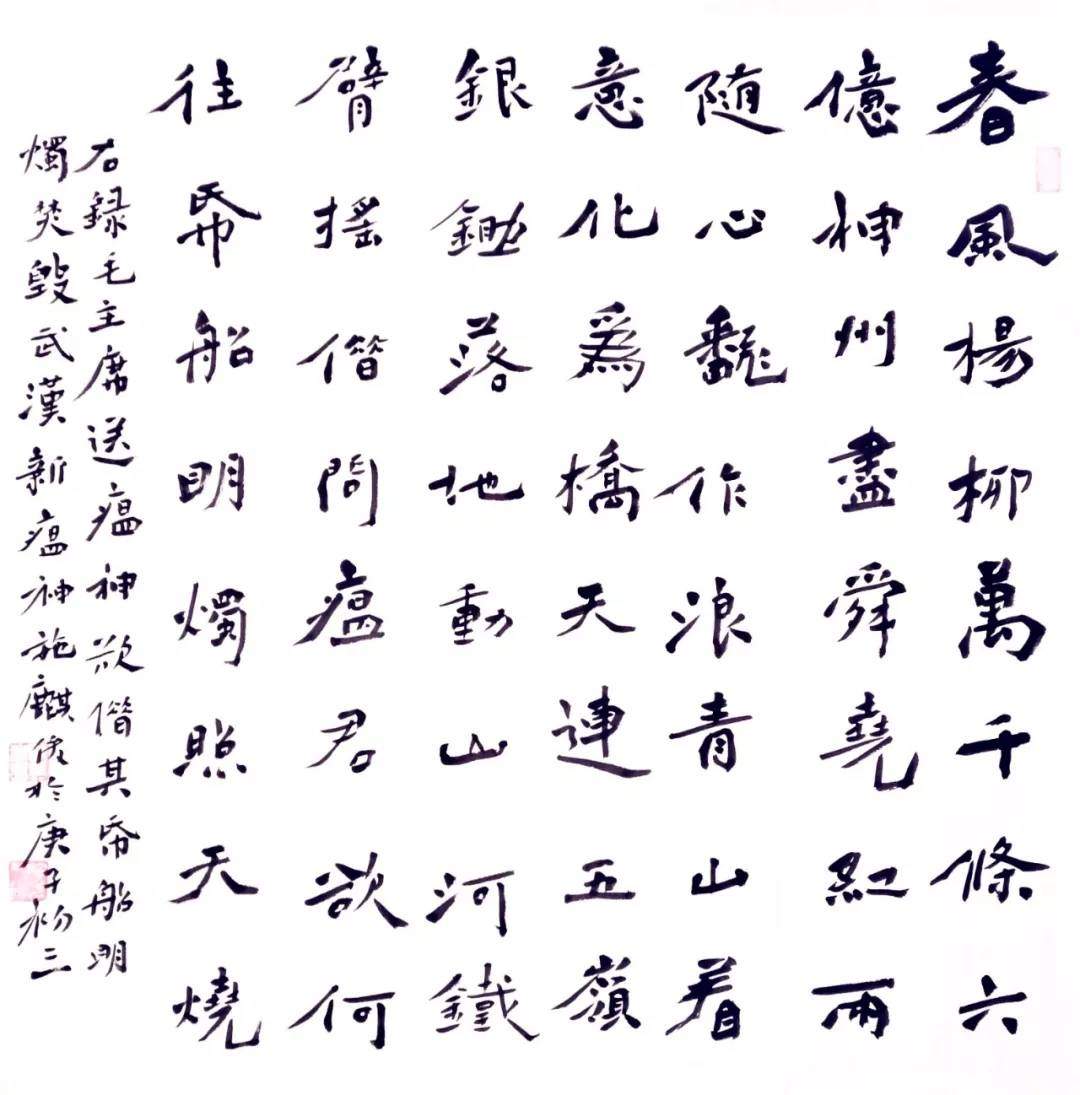 春風楊柳萬千條六
億神州盡舜堯紅雨
随心飜作浪青山着
意化爲橋天連五嶺
銀鋤落地動山河鐵
臂搖借問瘟君欲何
往帋船明燭照天燒
右録毛主席送瘟神欲借其帋船明
燭焚毀武漢新瘟神施麒於庚子初三